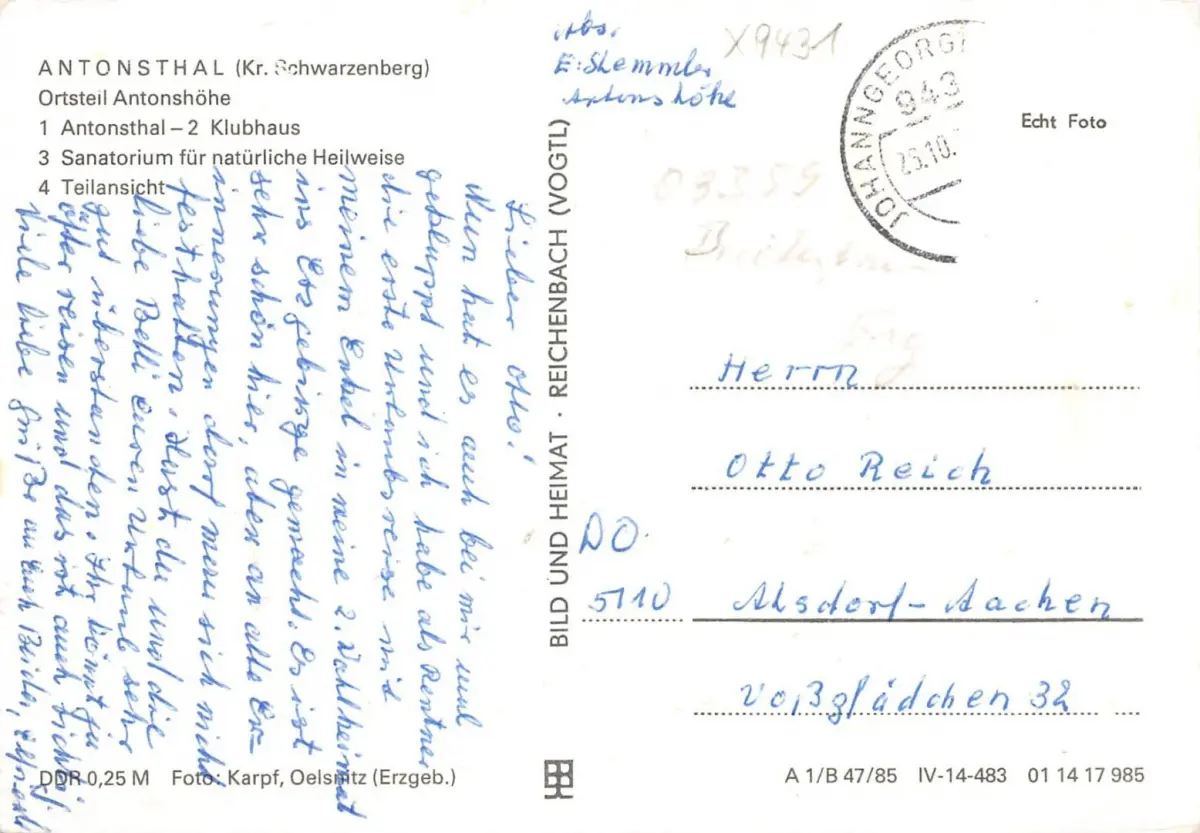 ANTONSTHAL (Kr. Schwarzenberg)
Ortsteil Antonshöhe
1 Antonsthal – 2 Klubhaus
3 Sanatorium für natürliche Heilweise
4 Teilansicht
Lieber Otto!
Nun hat es auch bei mir mal
gekluppt und ich habe als Rentner
die erste Urlaubsreise mit
meinem Enkel in meine 2. Wahlheimat
ins Erzgebirge gemacht. Es ist
sehr schön hier, aber an alte Er-
innerungen darf man sich nicht
festhalten. Hast du und die
liebe Betti Euren Urlaub sehr
gut überstanden. Ihr könnt ja
öfter reisen und das ist auch
Viele liebe Grüße an Euch Beide,
DDR 0,25 M Foto: Karpf, Oelsnitz (Erzgeb.)
BILD UND HEIMAT · REICHENBACH (VOGTL)
Abs.
E. Stemmler
Antonshöhe
X9431
JOHANNGEORG
943
25.10.
Echt Foto
03359
Herrn
Otto Reich
DO
5110 Alsdorf-Aachen
Voßglädchen 32
A 1/B 47/85 IV-14-483 01 14 17 985